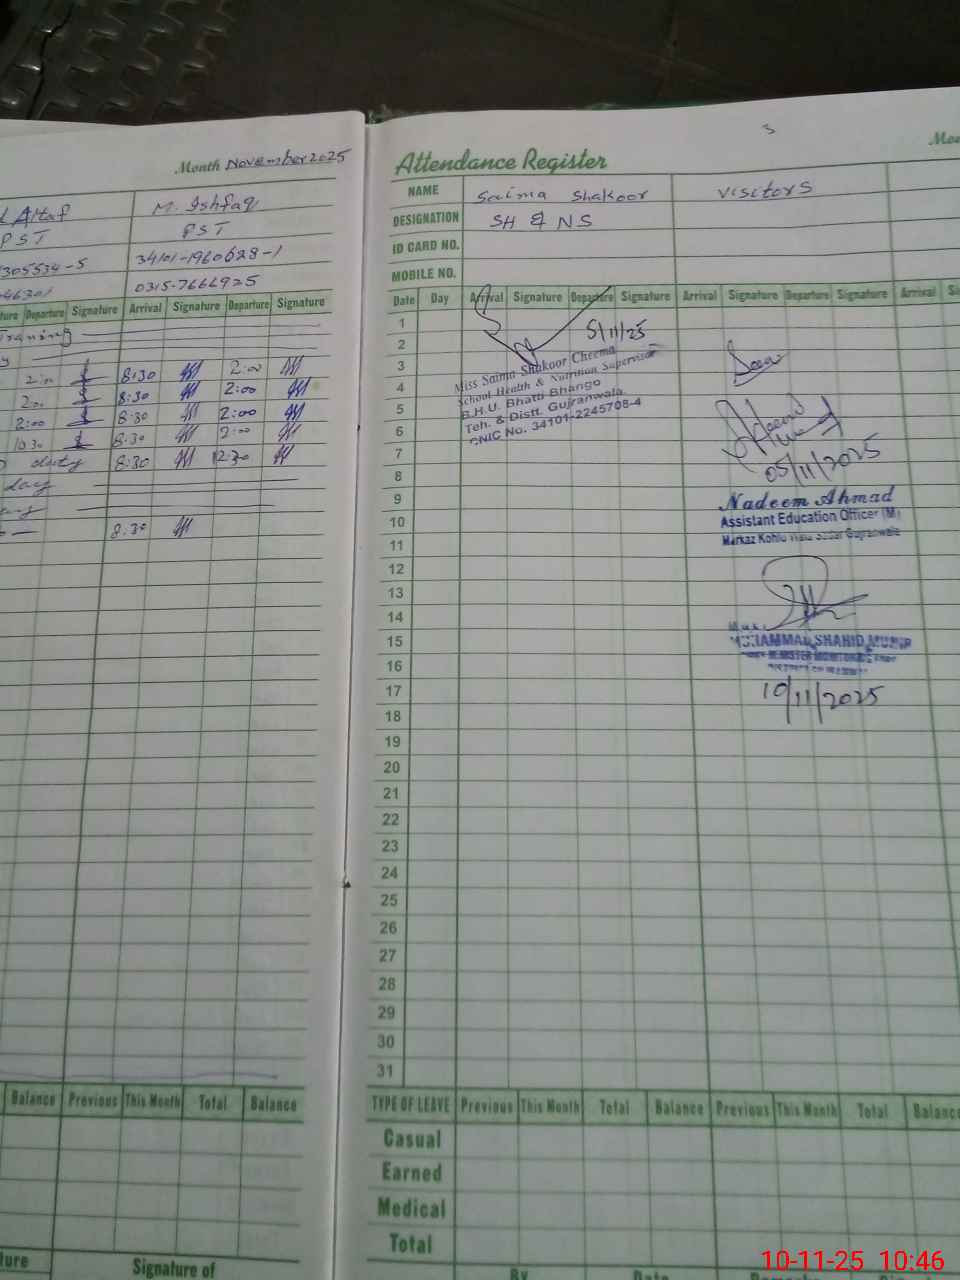 Month November 2025
Altaf
M. Ishfaq
PST
PST
305534-5
34101-1960628-1
46301
0315-7666925
Departure Signature Arrival Signature Departure Signature
Training
8:30 2:00
2:00 8:30 2:00
2:00 8:30 2:00
10:30 8:30 2:00
duty 8:30 12:30
day
8:30
Balance Previous This Month Total Balance
Signature of
Attendance Register
NAME Saima Shakoor Visitors
DESIGNATION SH & NS
ID CARD NO.
MOBILE NO.
Date Day Arrival Signature Departure Signature Arrival Signature Departure Signature Arrival
1
2 5/11/25
3
4
5
6
7
8
9
10
11
12
13
14
15
16
17
18
19
20
21
22
23
24
25
26
27
28
29
30
31
Miss Saima Shakoor Cheema
School Health & Nutrition Supervisor
B.H.U. Bhatti Bhango
Teh. & Distt. Gujranwala.
CNIC No. 34101-2245708-4
05/11/2025
Nadeem Ahmad
Assistant Education Officer (M)
Markaz Kohlu Sadar Gujranwala
MUHAMMAD SHAHID MUNIR
10/11/2025
TYPE OF LEAVE Previous This Month Total Balance Previous This Month Total Balance
Casual
Earned
Medical
Total
By Date
10-11-25 10:46